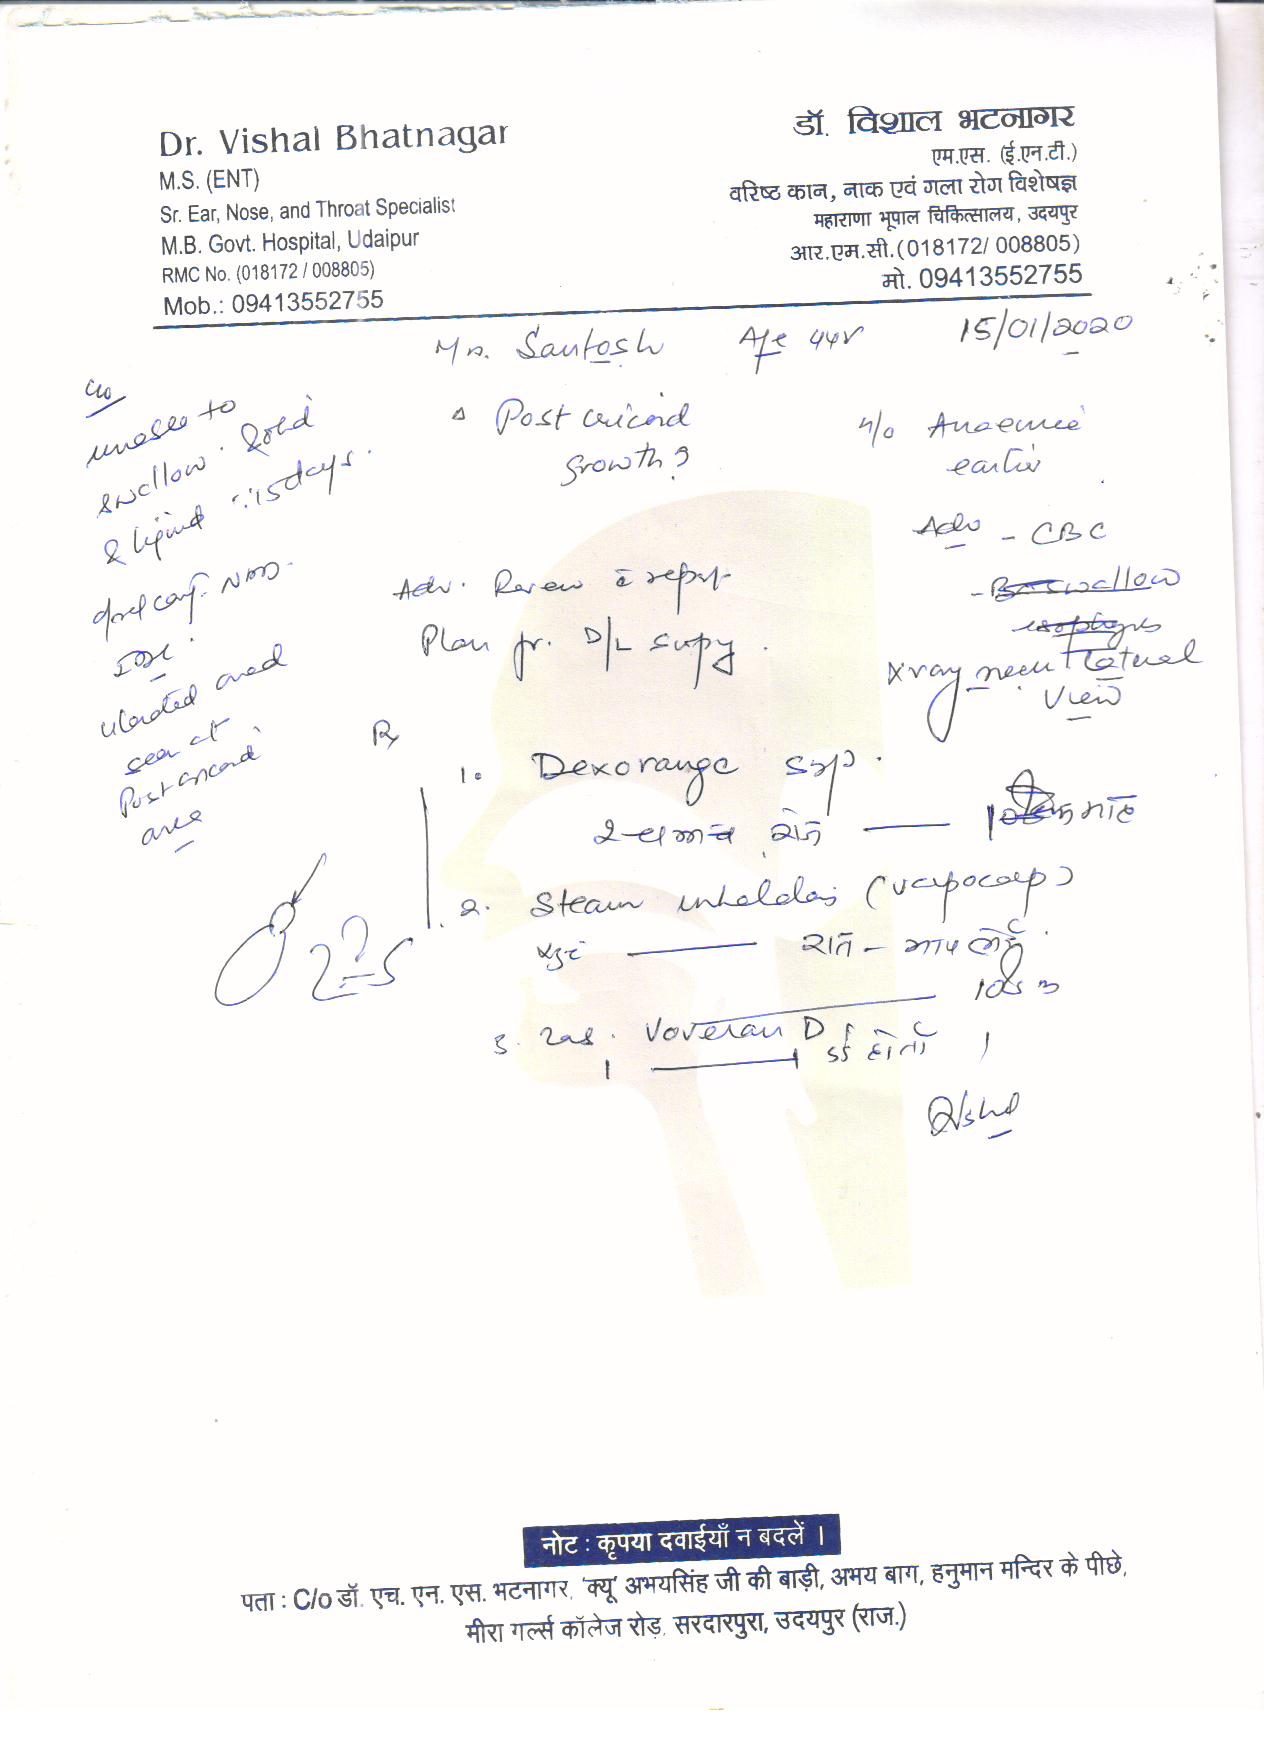 Dr. Vishal Bhatnagar
M.S. (ENT)
Sr. Ear, Nose, and Throat Specialist
M.B. Govt. Hospital, Udaipur
RMC No. (018172 / 008805)
Mob.: 09413552755
डॉ. विशाल भटनागर
एम.एस. (ई.एन.टी.)
वरिष्ठ कान, नाक एवं गला रोग विशेषज्ञ
महाराणा भूपाल चिकित्सालय, उदयपुर
आर.एम.सी.(018172/ 008805)
मो. 09413552755
Santosh Age 44
15/01/2020
c/o
unable to
swallow solid
& liquid 15days.
IDL:
ulcerated area
seen at
Post cricoid
area
Δ Post cricoid
growth?
h/o Anaemia
earlier
Adv - CBC
- Ba swallow
Xray neck lateral
View
Adv. Review c̄ report
Plan for D/L scopy.
Rx
1. Dexorange syp.
2 चम्मच रोज
2. Steam inhalation (vapocap)
3. Tab. Voveran D
नोट : कृपया दवाईयाँ न बदलें ।
पता : C/o डॉ. एच. एन. एस. भटनागर, 'क्यू' अभयसिंह जी की बाड़ी, अभय बाग, हनुमान मन्दिर के पीछे,
मीरा गर्ल्स कॉलेज रोड़, सरदारपुरा, उदयपुर (राज.)